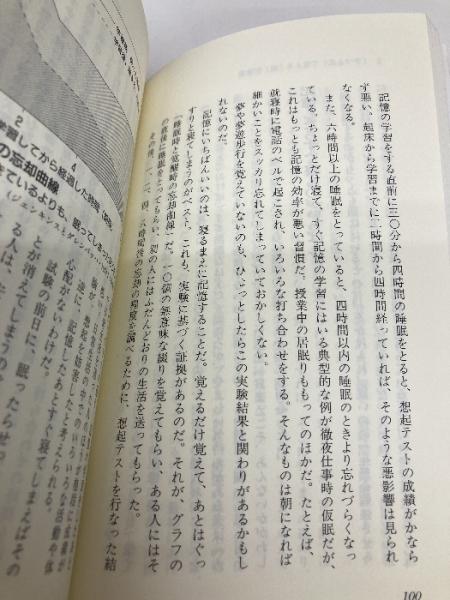 記憶の学習をする直前に三〇分から四時間の睡眠をとると、想起テストの成績がかなら
ず悪い。起床から学習までに二時間から四時間経っていれば、そのような悪影響は見られ
なくなる。
また、六時間以上の睡眠をとっていると、四時間以内の睡眠のときより忘れづらくなっ
ている。ちょっとだけ寝て、すぐ記憶の学習にはいる典型的な例が徹夜仕事時の仮眠だが、
これはもっとも記憶の効率が悪い習慣だ。授業中の居眠りももってのほかだ。たとえば、
就寝時に電話のベルで起こされ、いろいろな打ち合わせをする。そんなものは朝になれば
細かいことをスッカリ忘れてしまっていておかしくない。
夢や夢遊歩行を覚えていないのも、ひょっとしたらこの実験結果と関わりがあるかもし
れないのだ。
記憶にいちばんいいのは、寝るまえに記憶することだ。覚えるだけ覚えて、あとはぐっ
すりと寝てしまうのがベスト。これも、実験に基づく証拠があるのだ。それが、グラフの
「睡眠時と覚醒時の忘却曲線」だ。一〇個の無意味な綴りを覚えてもらい、ある人にはそ
の直後に睡眠をとってもらい、別の人にはふだんどおりの生活を送ってもらった。
その後、一、二、四、八時間後の忘却の程度を調べるために、想起テストを行なった結
2
4
学習してから経過した時間
の忘却曲線
きているよりも、眠ってしまった
ジェンキンスとダレンバック
とが消えてしまうの
試験の前日に、眠ったらせっ
る人は、
心配がないわけだ。
逆に、記憶したあとすぐ寝てしまえばその
想起を妨害したと考えられる
日常生活の中でのいろいろな活動や体
100